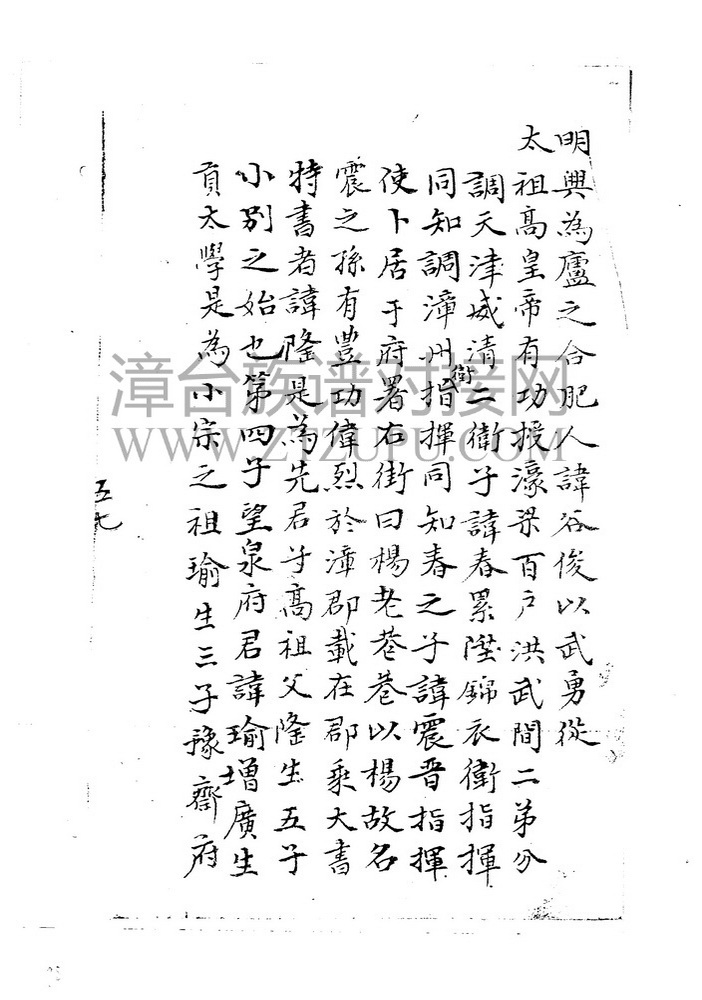 明興為廬之合肥人諱谷俊以武勇從
太祖高皇帝有功授濠梁百戶洪武間二弟分
調天津威清二衛子諱春累陞錦衣衛指揮
同知調漳州衛指揮同知春之子諱震晋指揮
使卜居于府署右街曰楊老巷巷以楊故名
震之孫有豊功偉烈於漳郡載在郡乘大書
特書者諱隆是為先君子高祖父隆生五子
小別之始也第四子望泉府君諱瑜增廣生
貢太學是為小宗之祖瑜生三子豫齋府
五七
漳台族谱对接网
WWW.ZTZUPU.COM